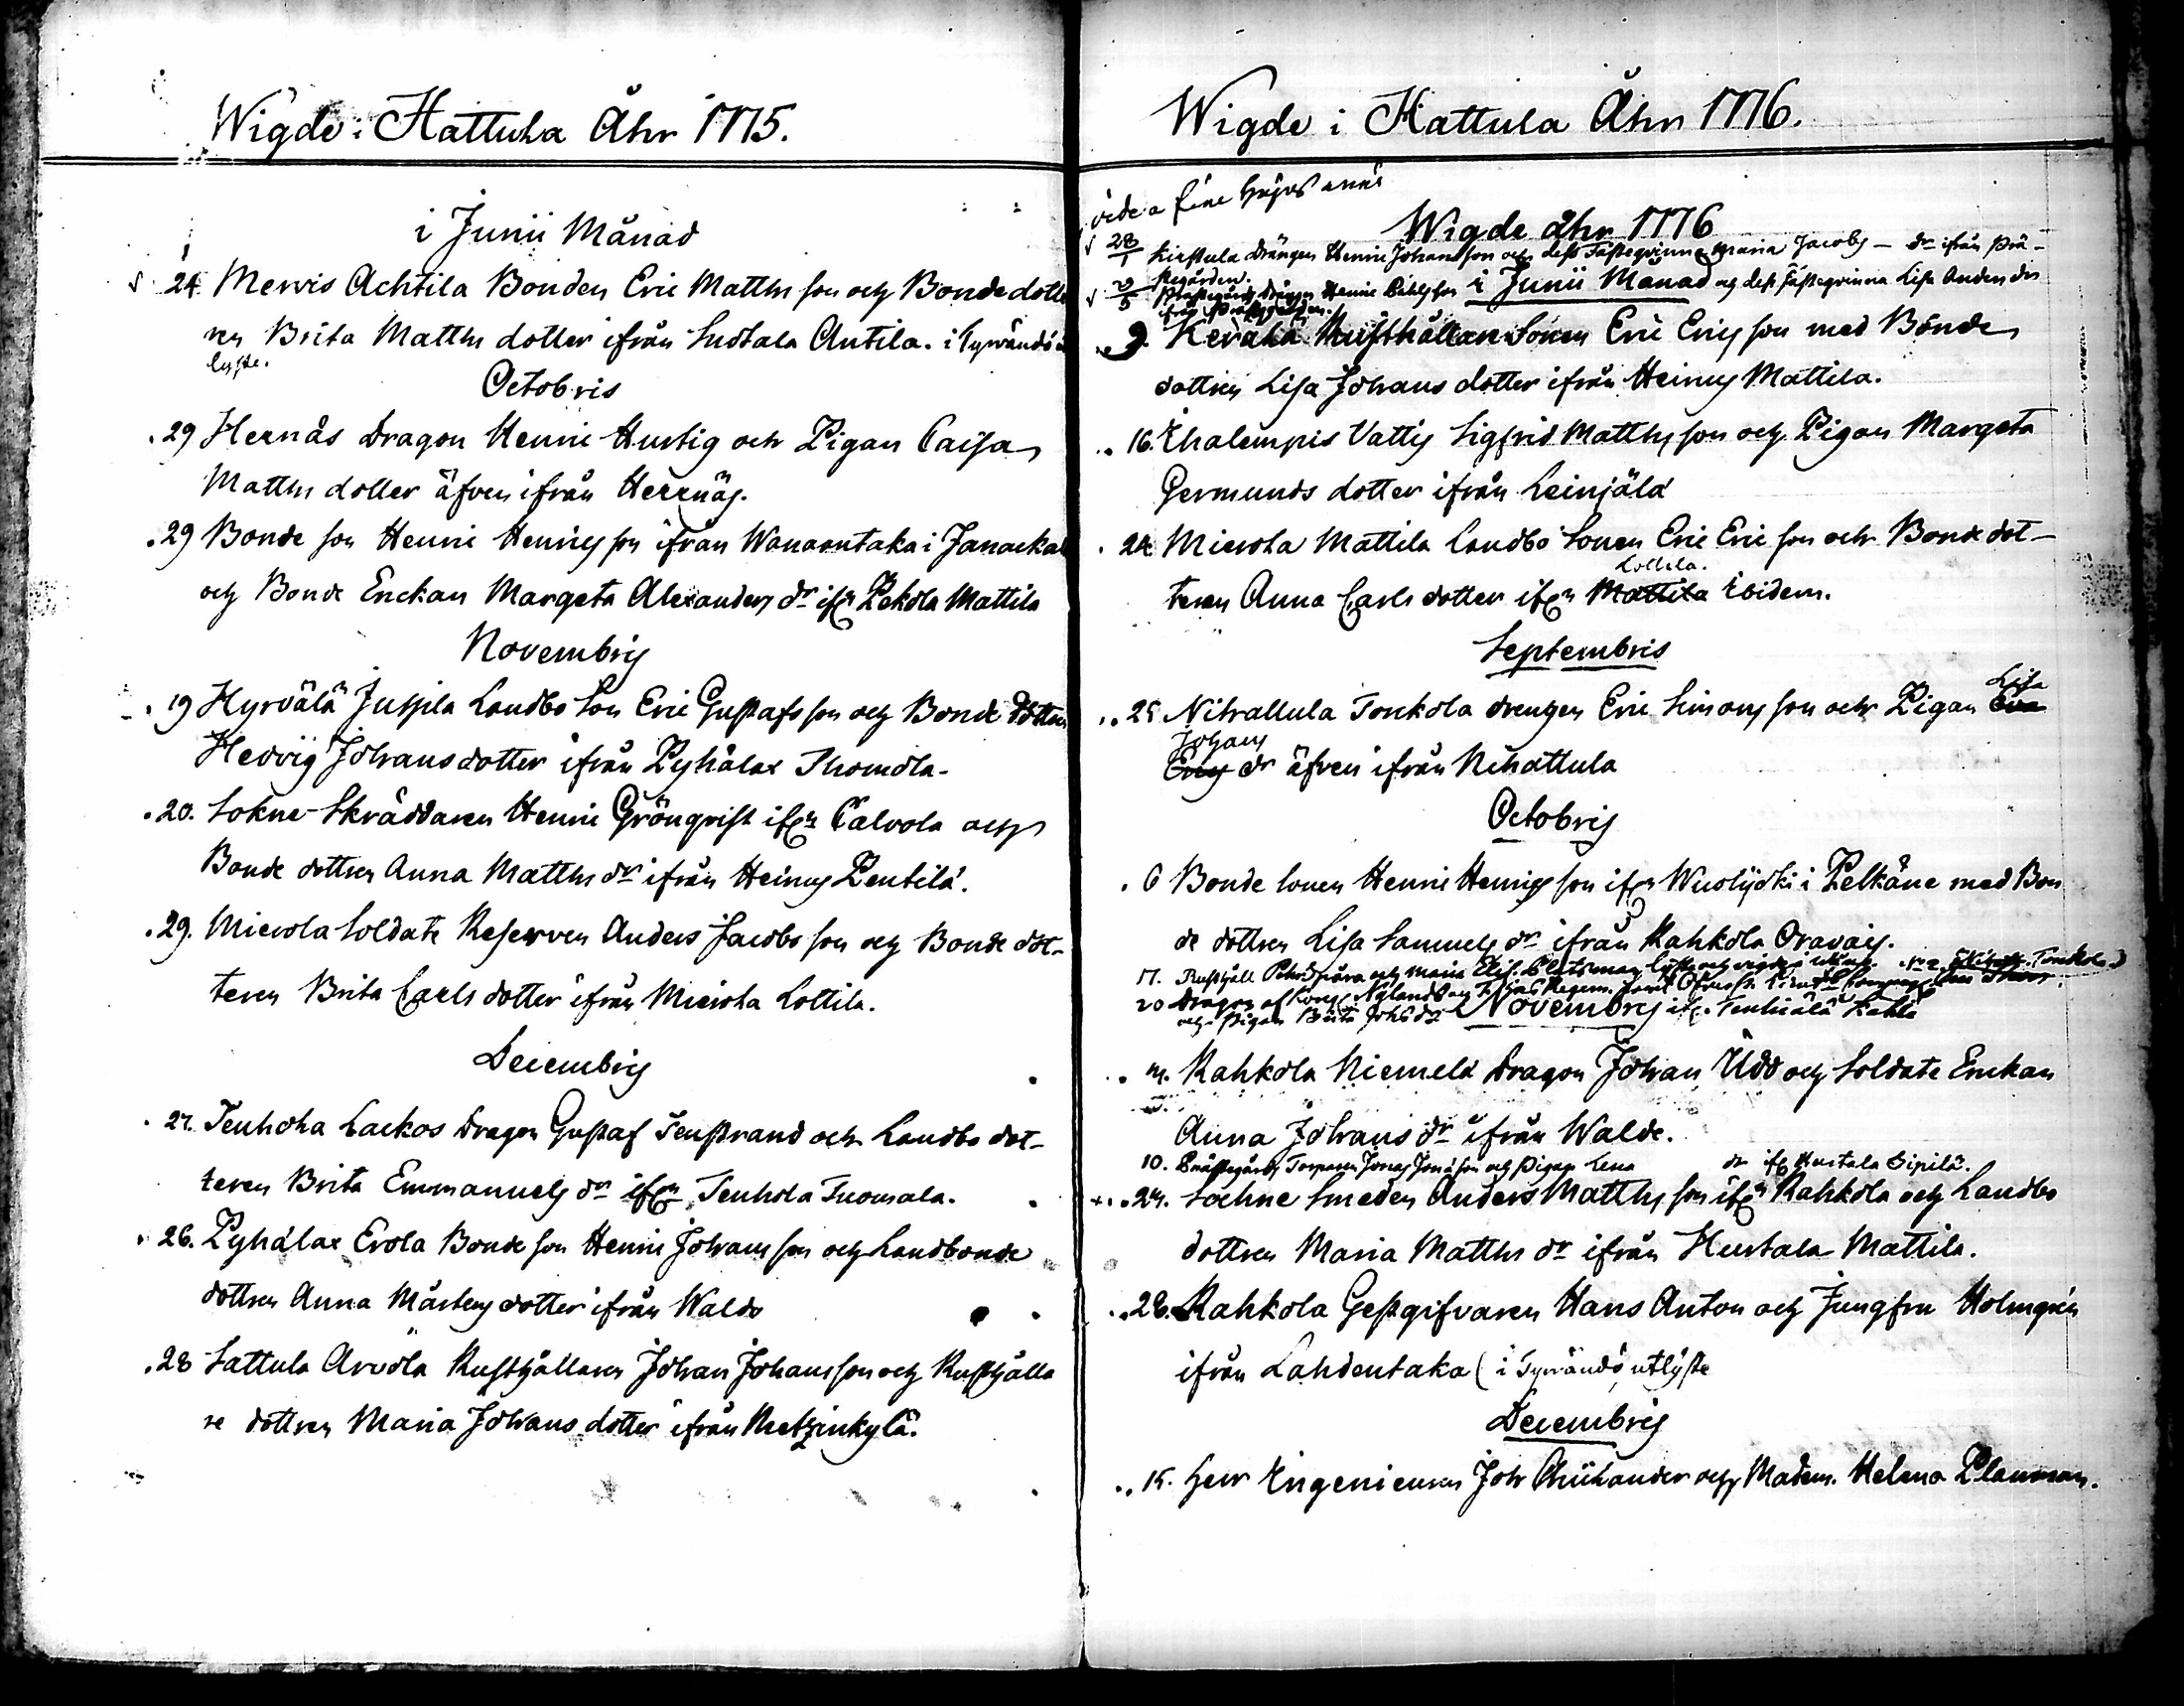 Wigde i Hattula Åhr 1775.
i Junii Månad
24 Mervis Achtila Bonden Eric Matths son och Bonde dotte
ren Brita Matths dotter ifrån Sudtala Antila. i Tyrvändö
lyste.
Octobris
29 Hernäs Dragon Henric Hurtig och Pigan Caisa
Matths dotter äfven ifrån Hernäs.
29 Bonde son Henric Henrics son ifrån Wanaantaka i Janackal
och Bonde Enckan Margeta Alexanders dr ifrn Pekola Mattila
Novembris
19 Hyrvälä Jussila Landbo Son Eric Gustafs son och Bonde dottren
Hedvig Johans dotter ifrån Pyhälax Thomola.
20. Sokne-Skräddaren Henric Grönqvist ifrn Calvola och
Bonde dottren Anna Matths dr ifrån Heinus Pentilä.
29. Mierola Soldate Reserven Anders Jacobs son och Bonde dot-
teren Brita Carls dotter ifrån Mierola Lottila.
Decembris
27. Tenhola Lackos Dragon Gustaf Tenstrand och Landbo dot-
teren Brita Emmanuels dr ifrn Tenhola Tuomala.
26. Pyhälax Erola Bonde son Henric Johans son och Landbonde
dottren Anna Mårtens dotter ifrån Waldo
28 Sattula Arvola Rusthållaren Johan Johans son och Rusthålla
re dottren Maria Johans dotter ifrån Metzinkylä.
Wigde i Hattula Åhr 1776.
Wigde åhr 1776
28/1 Drängen Henric Johans son och dess Fästeqvinna Maria Jacobs dr ifrån Prä-
stegården.
5 Prästegårds Drängen Henric och dess fästeqvinna Lisa Anders dr
ifrån Prästegården.
i Junii Månad
9. Kerälä Rusthållare Sonen Eric Erics son med Bonde
dottren Lisa Johans dotter ifrån Heinus Mattila.
16. Ihalempis Vattis Sigfrid Matths son och Pigan Margeta
Germunds dotter ifrån Leinjälä
24 Mierola Mattila Landbo Sonen Eric Eric son och Bonde dot-
Lottila.
teren Anna Carls dotter ifrn Mattila Ibidem.
Septembris
Lisa
25 Nihattula Tonkola drengen Eric Simons son och Pigan Eva
Johans
Erics dr äfven ifrån Nihattula
Octobris
6 Bonde sonen Henric Henrics son ifrn Wuolijoki i Pelkäne med Bon
de dottren Lisa Samuels dr ifrån Rahkola Oravais.
17. och Maria Elis. lyste och vigde
20 Dragon af
och Pigan Brita Johs dr ifr. Tenhiälä
Novembris
Rahkola Niemelä Dragon Johan Udd och Soldate Enckan
Anna Johans dr ifrån Walde.
10. Prästegårds Torparen Jonas Jonæ son och Pigan Lena dr ifr Hurtala Sipilä.
24. Sockne Smeden Anders Matths son ifrn Rahkola och Landbo
dottren Maria Matths dr ifrån Hurtala Mattila.
28. Rahkola Gestgifvaren Hans Anton och Jungfru Holmgrén
ifrån Lahdentaka (i Tyrvändö utlyste
Decembris
15. Herr Ingenieuren Joh och Madem. Helena Planman.